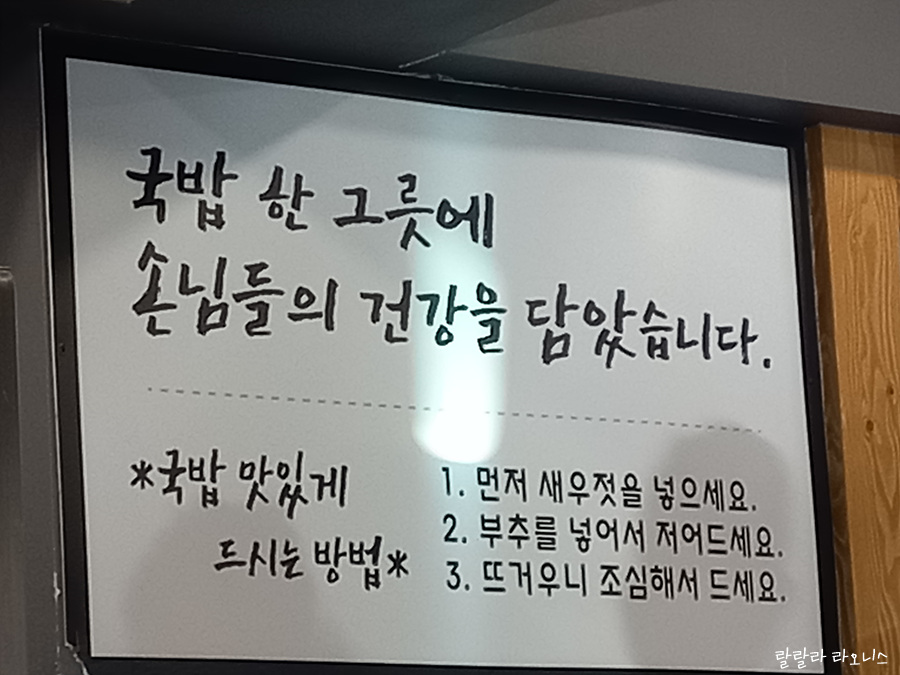 국밥 한 그릇에
손님들의 건강을 담았습니다.
*국밥 맛있게
드시는 방법*
1. 먼저 새우젓을 넣으세요.
2. 부추를 넣어서 저어드세요.
3. 뜨거우니 조심해서 드세요.
랄랄라 라오니스